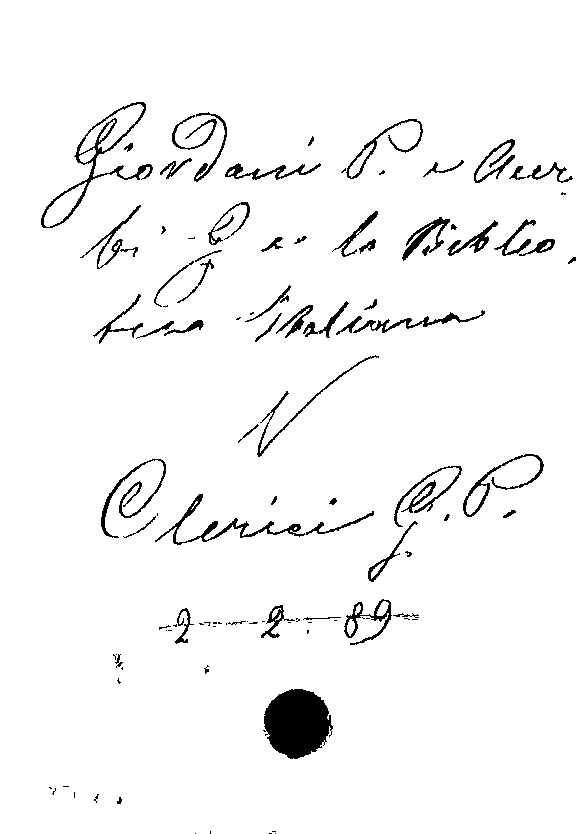 Giordani P. e Acer-
bi G e la Biblio-
teca Italiana
V
Clerici G. P.
2 2. 89